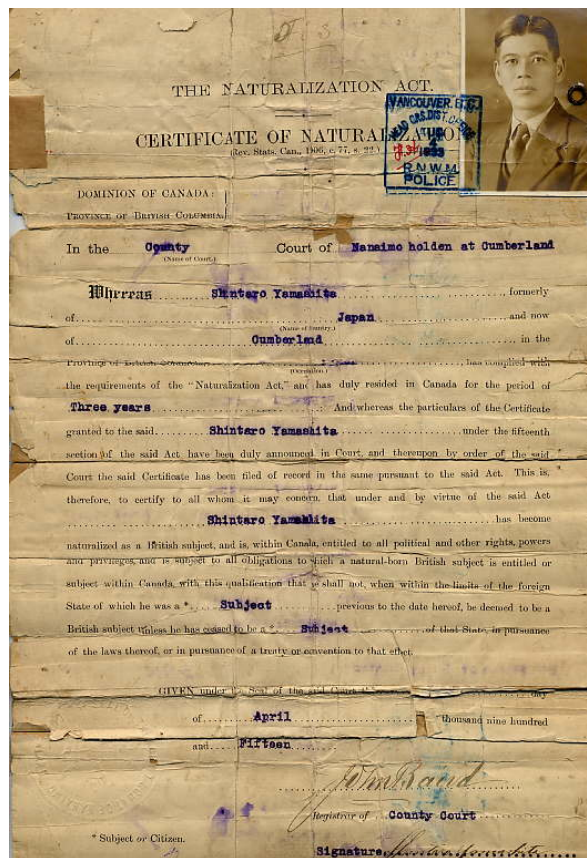 THE NATURALIZATION ACT.
CERTIFICATE OF NATURALIZATION
(Rev. Stats. Can., 1906, c. 77, s. 22.)
VANCOUVER, B.C.
HEAD QRS. DIST. OFFICE
R.N.W.M.
POLICE
DOMINION OF CANADA:
PROVINCE OF BRITISH COLUMBIA.
In the County Court of Nanaimo holden at Cumberland
(Name of Court.)
Whereas Shintaro Yamashita, formerly
of Japan, and now
(Name of Country.)
of Cumberland, in the
Province of British Columbia, has complied with
(Occupation.)
the requirements of the "Naturalization Act," and has duly resided in Canada for the period of
Three years. And whereas the particulars of the Certificate
granted to the said Shintaro Yamashita under the fifteenth
section of the said Act have been duly announced in Court, and thereupon by order of the said
Court the said Certificate has been filed of record in the same pursuant to the said Act. This is,
therefore, to certify to all whom it may concern, that under and by virtue of the said Act
Shintaro Yamashita has become
naturalized as a British subject, and is, within Canada, entitled to all political and other rights, powers
and privileges, and is subject to all obligations to which a natural-born British subject is entitled or
subject within Canada, with this qualification that he shall not, when within the limits of the foreign
State of which he was a * Subject previous to the date hereof, be deemed to be a
British subject unless he has ceased to be a * Subject of that State, in pursuance
of the laws thereof, or in pursuance of a treaty or convention to that effect.
GIVEN under the Seal of the said Court day
of April thousand nine hundred
and Fifteen
John Baird
Registrar of County Court
* Subject or Citizen.
Signature